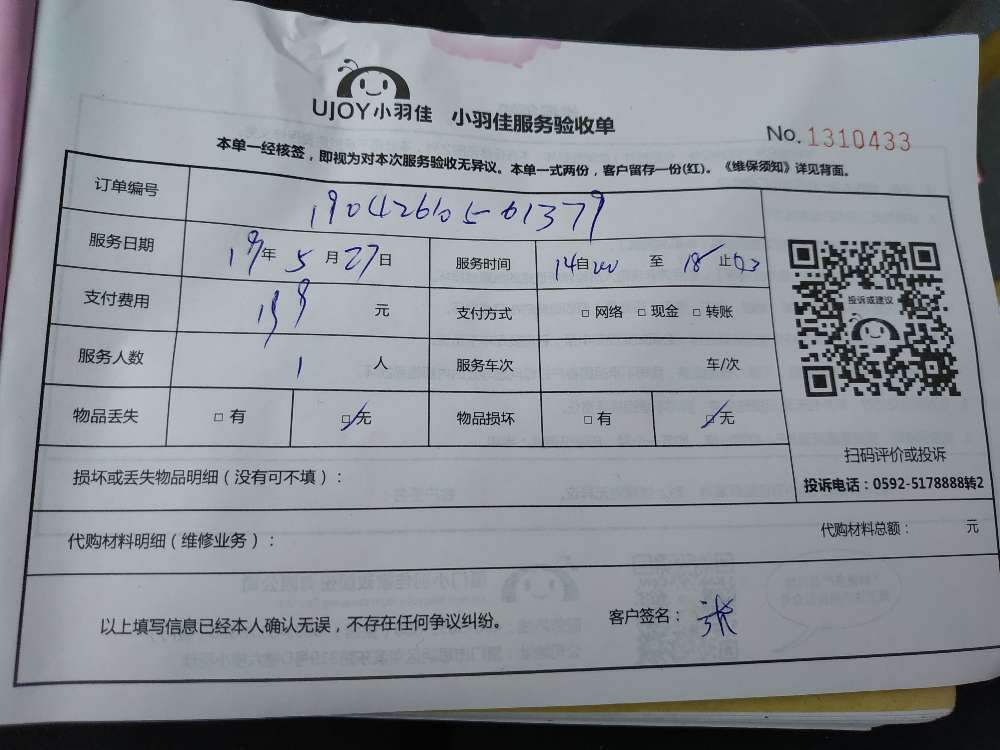 UJOY小羽佳 小羽佳服务验收单
No. 1310433
本单一经核签，即视为对本次服务验收无异议。本单一式两份，客户留存一份(红)。《维保须知》详见背面。
订单编号 190426105-01379
服务日期 19年 5 月 27日 服务时间 14自00 至 18止03
支付费用 199 元 支付方式 □ 网络 □ 现金 □ 转账
投诉或建议
服务人数 1 人 服务车次 车/次
物品丢失 □ 有 □ 无 物品损坏 □ 有 □ 无
扫码评价或投诉
损坏或丢失物品明细（没有可不填）：
投诉电话：0592-5178888转2
代购材料明细（维修业务）：
代购材料总额： 元
以上填写信息已经本人确认无误，不存在任何争议纠纷。
客户签名： 张